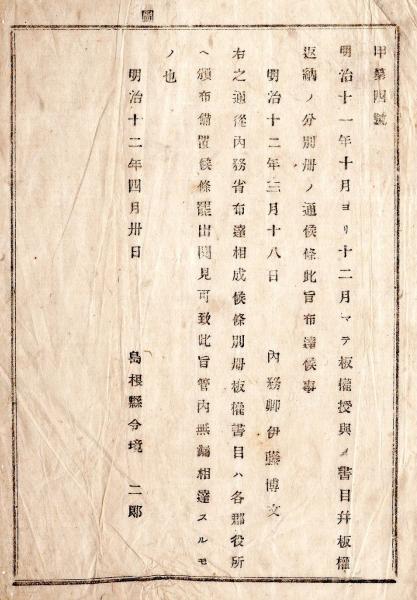 圖
甲第四號
明治十一年十月ヨリ十二月マテ板權授與ノ書目幷板權
返納ノ分別册ノ通候條此旨布達候事
明治十二年三月十八日 內務卿伊藤博文
右之通從內務省布達相成候條別册板權書目ハ各郡役所
ヘ頒布備置候條罷出閱見可致此旨管內無漏相達スルモ
ノ也
明治十二年四月卅日 島根縣令境 二郎